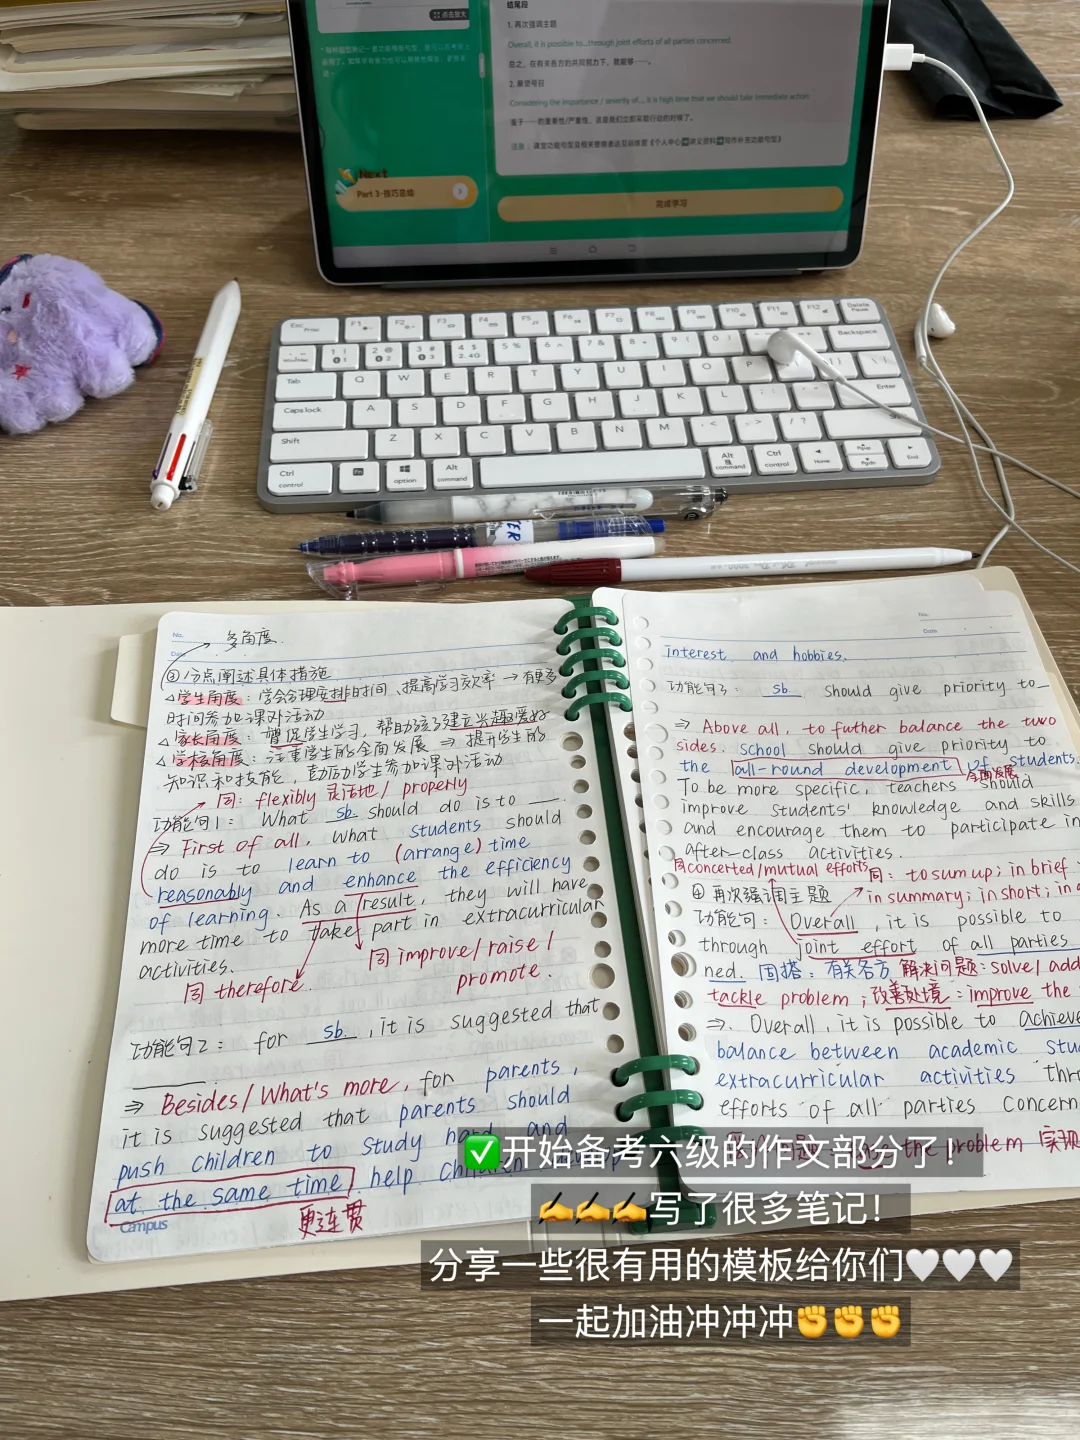 点击放大
结尾段
1. 再次强调主题
Overall, it is possible to...through joint efforts of all parties concerned.
总之，在有关各方的共同努力下，就能够……。
2. 最里号召
Considering the importance / severity of..., it is high time that we should take immediate action
鉴于……的重要性/严重性，该是我们立即采取行动的时候了。
Next
Part 3-技巧总结
完成学习
Esc F1 F2 F3 F4 F5 F6 F7 F8 F9 F10 F11 F12 Delete
Backspace
Tab Q W E R T Y U I O P
Caps lock A S D F G H J K L Enter
Shift Z X C V B N M
Ctrl control Fn option Alt command Alt command Ctrl control Home PgUp PgDn End
No.
Date
多角度
③分点阐述具体措施
△学生角度：学会合理安排时间、提高学习效率 → 有更多
时间参加课外活动
△家长角度：督促学生学习，帮助孩子建立兴趣爱好
△学校角度：注重学生的全面发展 ⇒ 提升学生的
知识和技能，鼓励学生参加课外活动
同：flexibly 灵活地 / properly
功能句1：What sb. should do is to ___.
⇒ First of all, what students should
do is to learn to (arrange) time
reasonably and enhance the efficiency
of learning. As a result, they will have
more time to take part in extracurricular
activities.
同 improve / raise /
promote.
同 therefore.
功能句2：for sb., it is suggested that
⇒ Besides/What's more, for parents,
it is suggested that parents should
push children to study hard and
at the same time help
更连贯
Campus
No.
Date
interest and hobbies.
功能句3：sb. should give priority to
⇒ Above all, to futher balance the two
sides. school should give priority to
the all-round development of students.
全面发展
To be more specific, teachers should
improve students' knowledge and skills
and encourage them to participate in
after-class activities.
同concerted/mutual efforts
同：to sum up; in brief
④再次强调主题
in summary; in short; in a
功能句：Overall, it is possible to
through joint effort of all parties
ned. 固搭：有关各方 解决问题：solve/ add
tackle problem；改善处境：improve the
⇒. Overall, it is possible to achieve
balance between academic stu
extracurricular activities thr
efforts of all parties concern
the problem 实现
✅开始备考六级的作文部分了！
✍✍✍写了很多笔记！
分享一些很有用的模板给你们🤍🤍🤍
一起加油冲冲冲✊✊✊